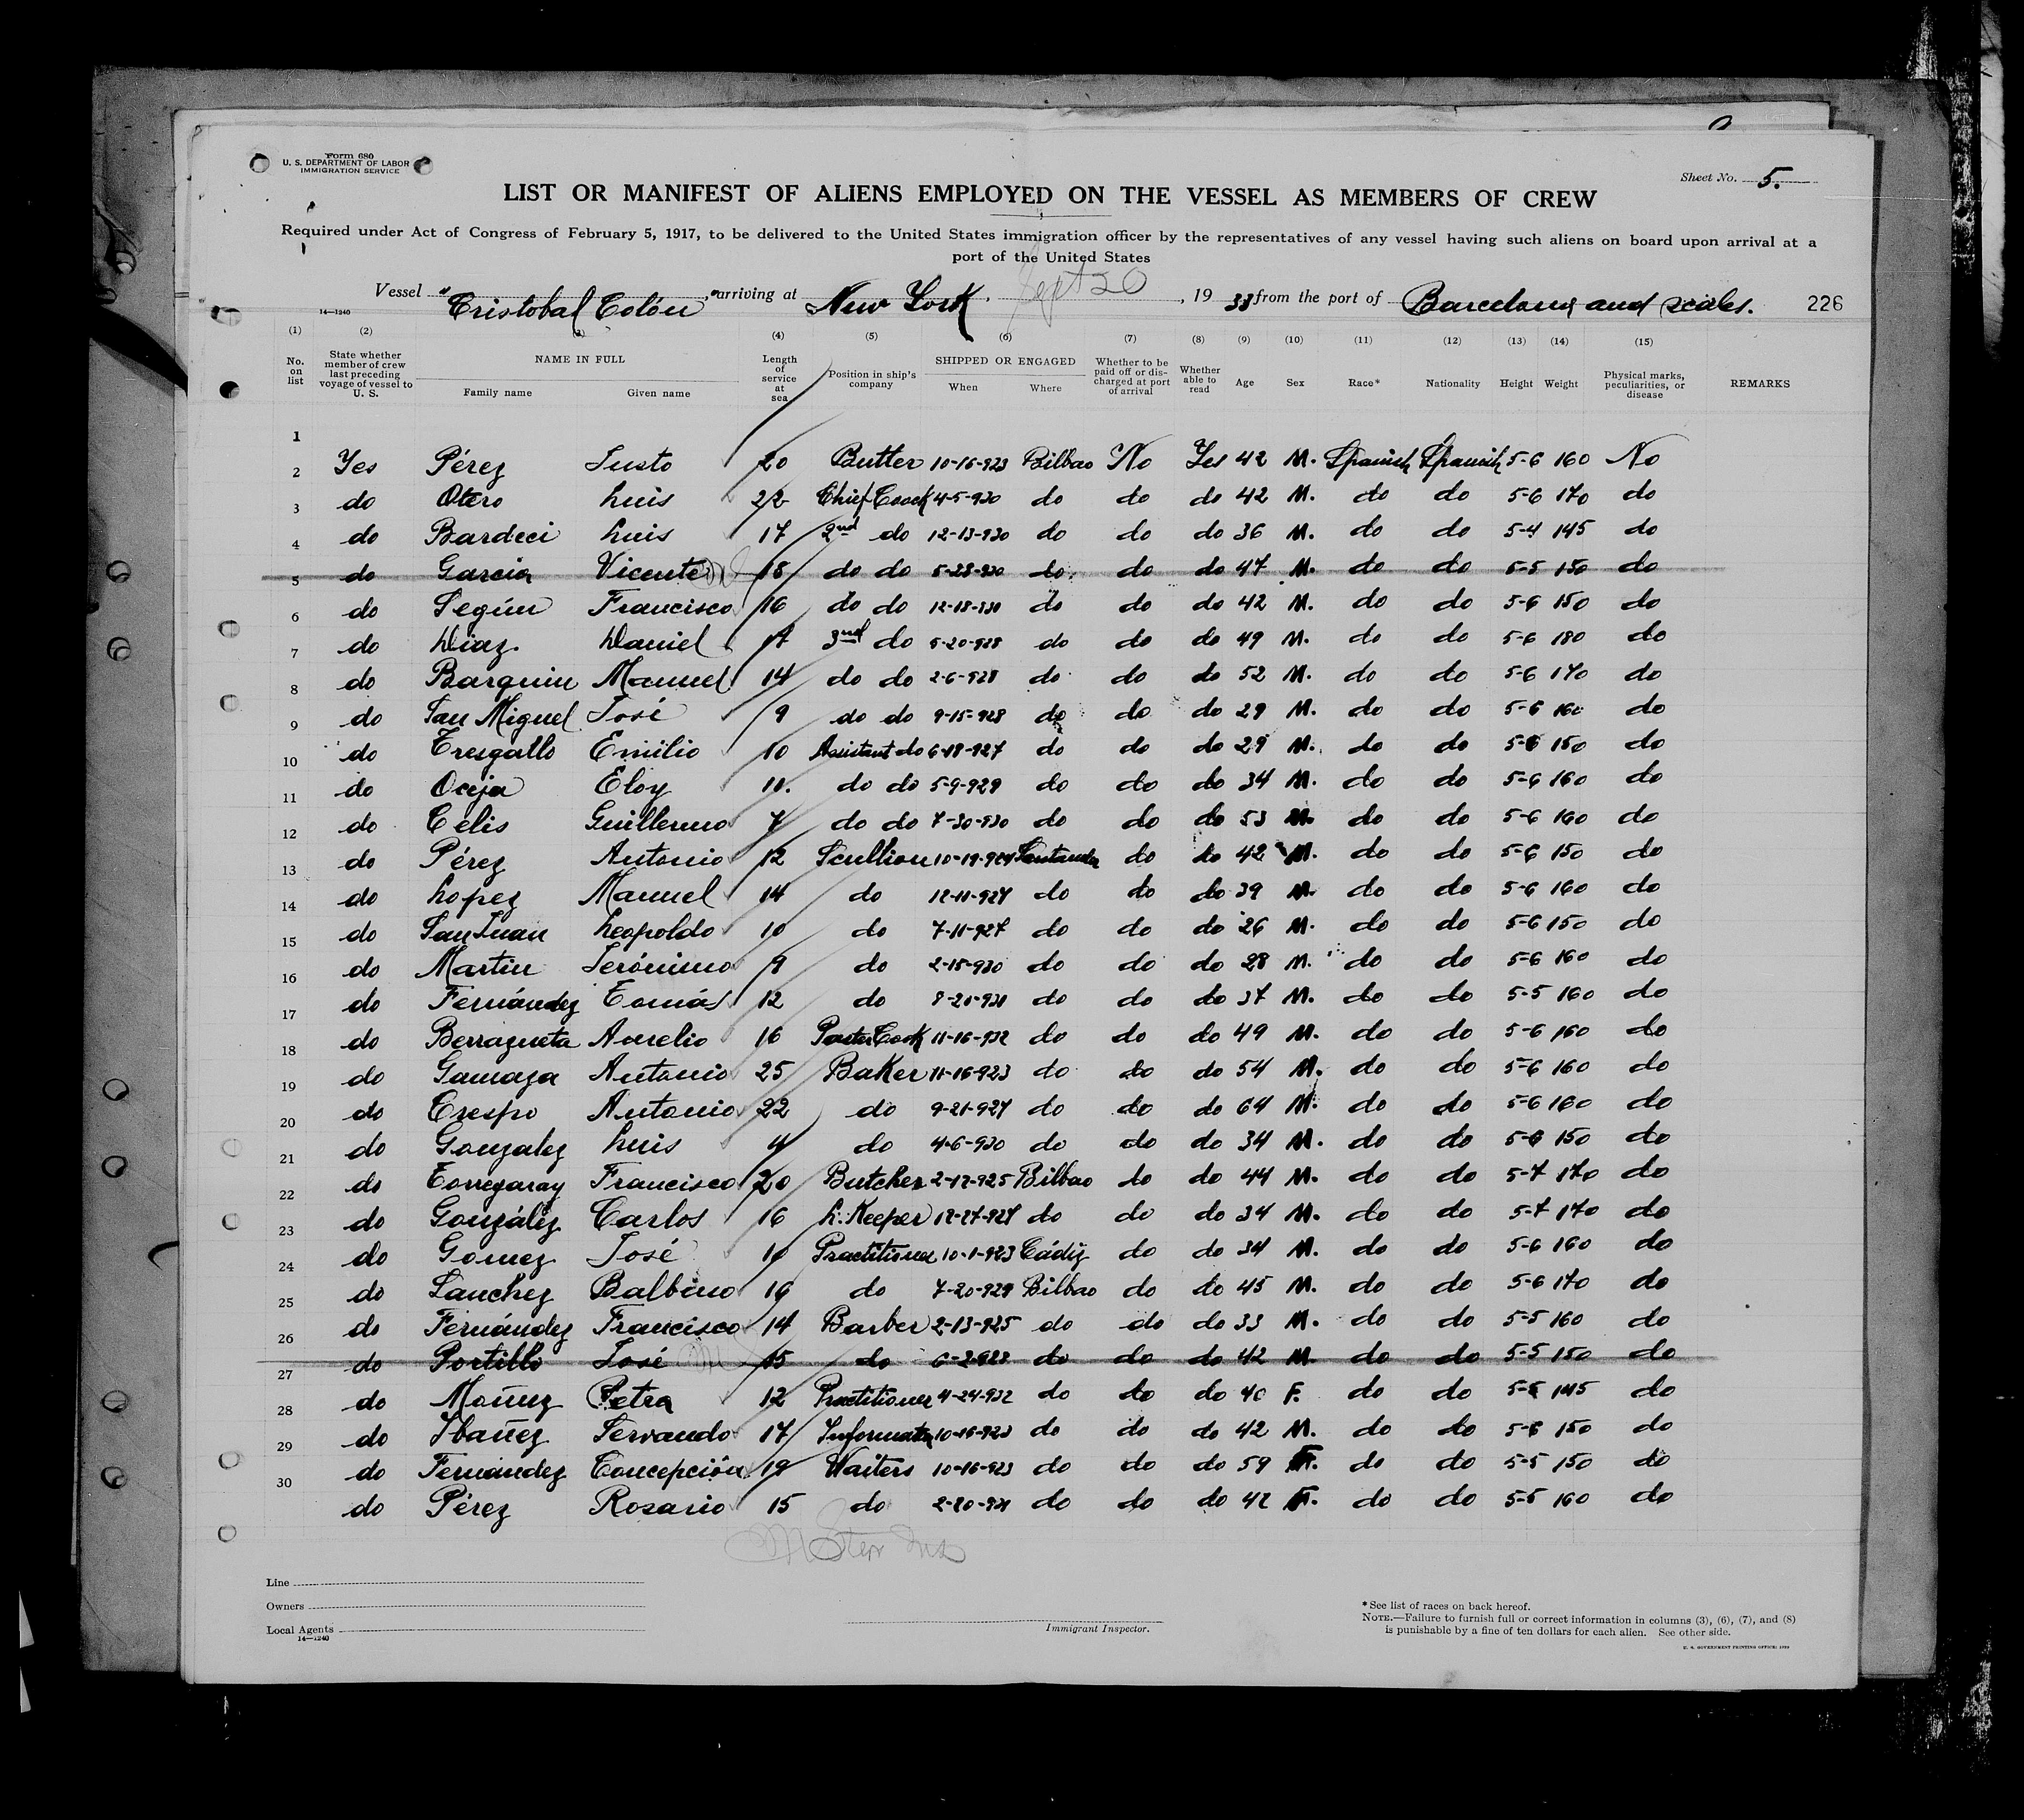 Form 680
U. S. DEPARTMENT OF LABOR
IMMIGRATION SERVICE
Sheet No. 5.
LIST OR MANIFEST OF ALIENS EMPLOYED ON THE VESSEL AS MEMBERS OF CREW
Required under Act of Congress of February 5, 1917, to be delivered to the United States immigration officer by the representatives of any vessel having such aliens on board upon arrival at a
port of the United States
Vessel "Cristobal Colón", arriving at New York, Sept 20, 1933 from the port of Barcelona and scales. 226
14—1240
(1) (2) (3) (4) (5) (6) (7) (8) (9) (10) (11) (12) (13) (14) (15)
No. on list State whether member of crew last preceding voyage of vessel to U. S. NAME IN FULL Family name Given name Length of service at sea Position in ship's company SHIPPED OR ENGAGED When Where Whether to be paid off or discharged at port of arrival Whether able to read Age Sex Race* Nationality Height Weight Physical marks, peculiarities, or disease REMARKS
1
2 Yes Pérez Justo 20 Butler 10-16-923 Bilbao No Yes 42 M. Spanish Spanish 5-6 160 No
3 do Otero Luis 22 Chief Coock 4-5-930 do do do 42 M. do do 5-6 170 do
4 do Bardeci Luis 17 2nd do 12-13-930 do do do 36 M. do do 5-4 145 do
5 do Garcia Vicente 18 do do 5-23-930 do do do 47 M. do do 5-5 150 do
6 do Segúu Francisco 16 do do 12-18-930 do do do 42 M. do do 5-6 150 do
7 do Diaz Daniel 17 3nd do 5-20-928 do do do 49 M. do do 5-6 180 do
8 do Barquin Manuel 14 do do 2-6-928 do do do 52 M. do do 5-6 170 do
9 do San Miguel José 9 do do 9-15-928 do do do 29 M. do do 5-6 160 do
10 do Tresgallo Emilio 10 Assistant do 6-18-927 do do do 29 M. do do 5-6 150 do
11 do Oceja Eloy 11. do do 5-9-929 do do do 34 M. do do 5-6 160 do
12 do Celis Guillermo 7 do do 7-30-930 do do do 53 M. do do 5-6 160 do
13 do Pérez Antonio 12 Scullion 10-19-924 Santander do do 42 M. do do 5-6 150 do
14 do Lopez Manuel 14 do 12-11-927 do do do 39 M. do do 5-6 160 do
15 do San Juan Leopoldo 10 do 7-11-927 do do do 26 M. do do 5-6 150 do
16 do Martin Jerónimo 9 do 2-15-930 do do do 28 M. do do 5-6 160 do
17 do Fernández Tomás 12 do 8-20-930 do do do 37 M. do do 5-5 160 do
18 do Berrazueta Aurelio 16 Cook 11-16-932 do do do 49 M. do do 5-6 160 do
19 do Gamaza Antonio 25 Baker 11-16-923 do do do 54 M. do do 5-6 160 do
20 do Crespo Antonio 22 do 9-21-927 do do do 64 M. do do 5-6 160 do
21 do Gonzalez Luis 4 do 4-6-930 do do do 34 M. do do 5-6 150 do
22 do Torregaray Francisco 20 Butcher 2-17-925 Bilbao do do 44 M. do do 5-7 170 do
23 do González Carlos 16 L. Keeper 12-27-927 do do do 34 M. do do 5-7 170 do
24 do Gomez José 10 Practitioner 10-1-923 Cádiz do do 34 M. do do 5-6 160 do
25 do Sanchez Balbino 19 do 7-20-929 Bilbao do do 45 M. do do 5-6 170 do
26 do Fernández Francisco 14 Barber 2-13-925 do do do 33 M. do do 5-5 160 do
27 do Portillo José 15 do 6-2-923 do do do 42 M. do do 5-5 150 do
28 do Petra 12 Practitioner 4-24-932 do do do 40 F. do do 5-5 145 do
29 do Ibañez Servando 17 10-16-923 do do do 42 M. do do 5-6 150 do
30 do Fernández Concepción 19 Waiters 10-16-923 do do do 59 F. do do 5-5 150 do
do Pérez Rosario 15 do do do do 42 F. do do 5-5 160 do
Line
Owners
Local Agents
14—1240
Immigrant Inspector.
*See list of races on back hereof.
NOTE.—Failure to furnish full or correct information in columns (3), (6), (7), and (8)
is punishable by a fine of ten dollars for each alien. See other side.
U. S. GOVERNMENT PRINTING OFFICE: 1930